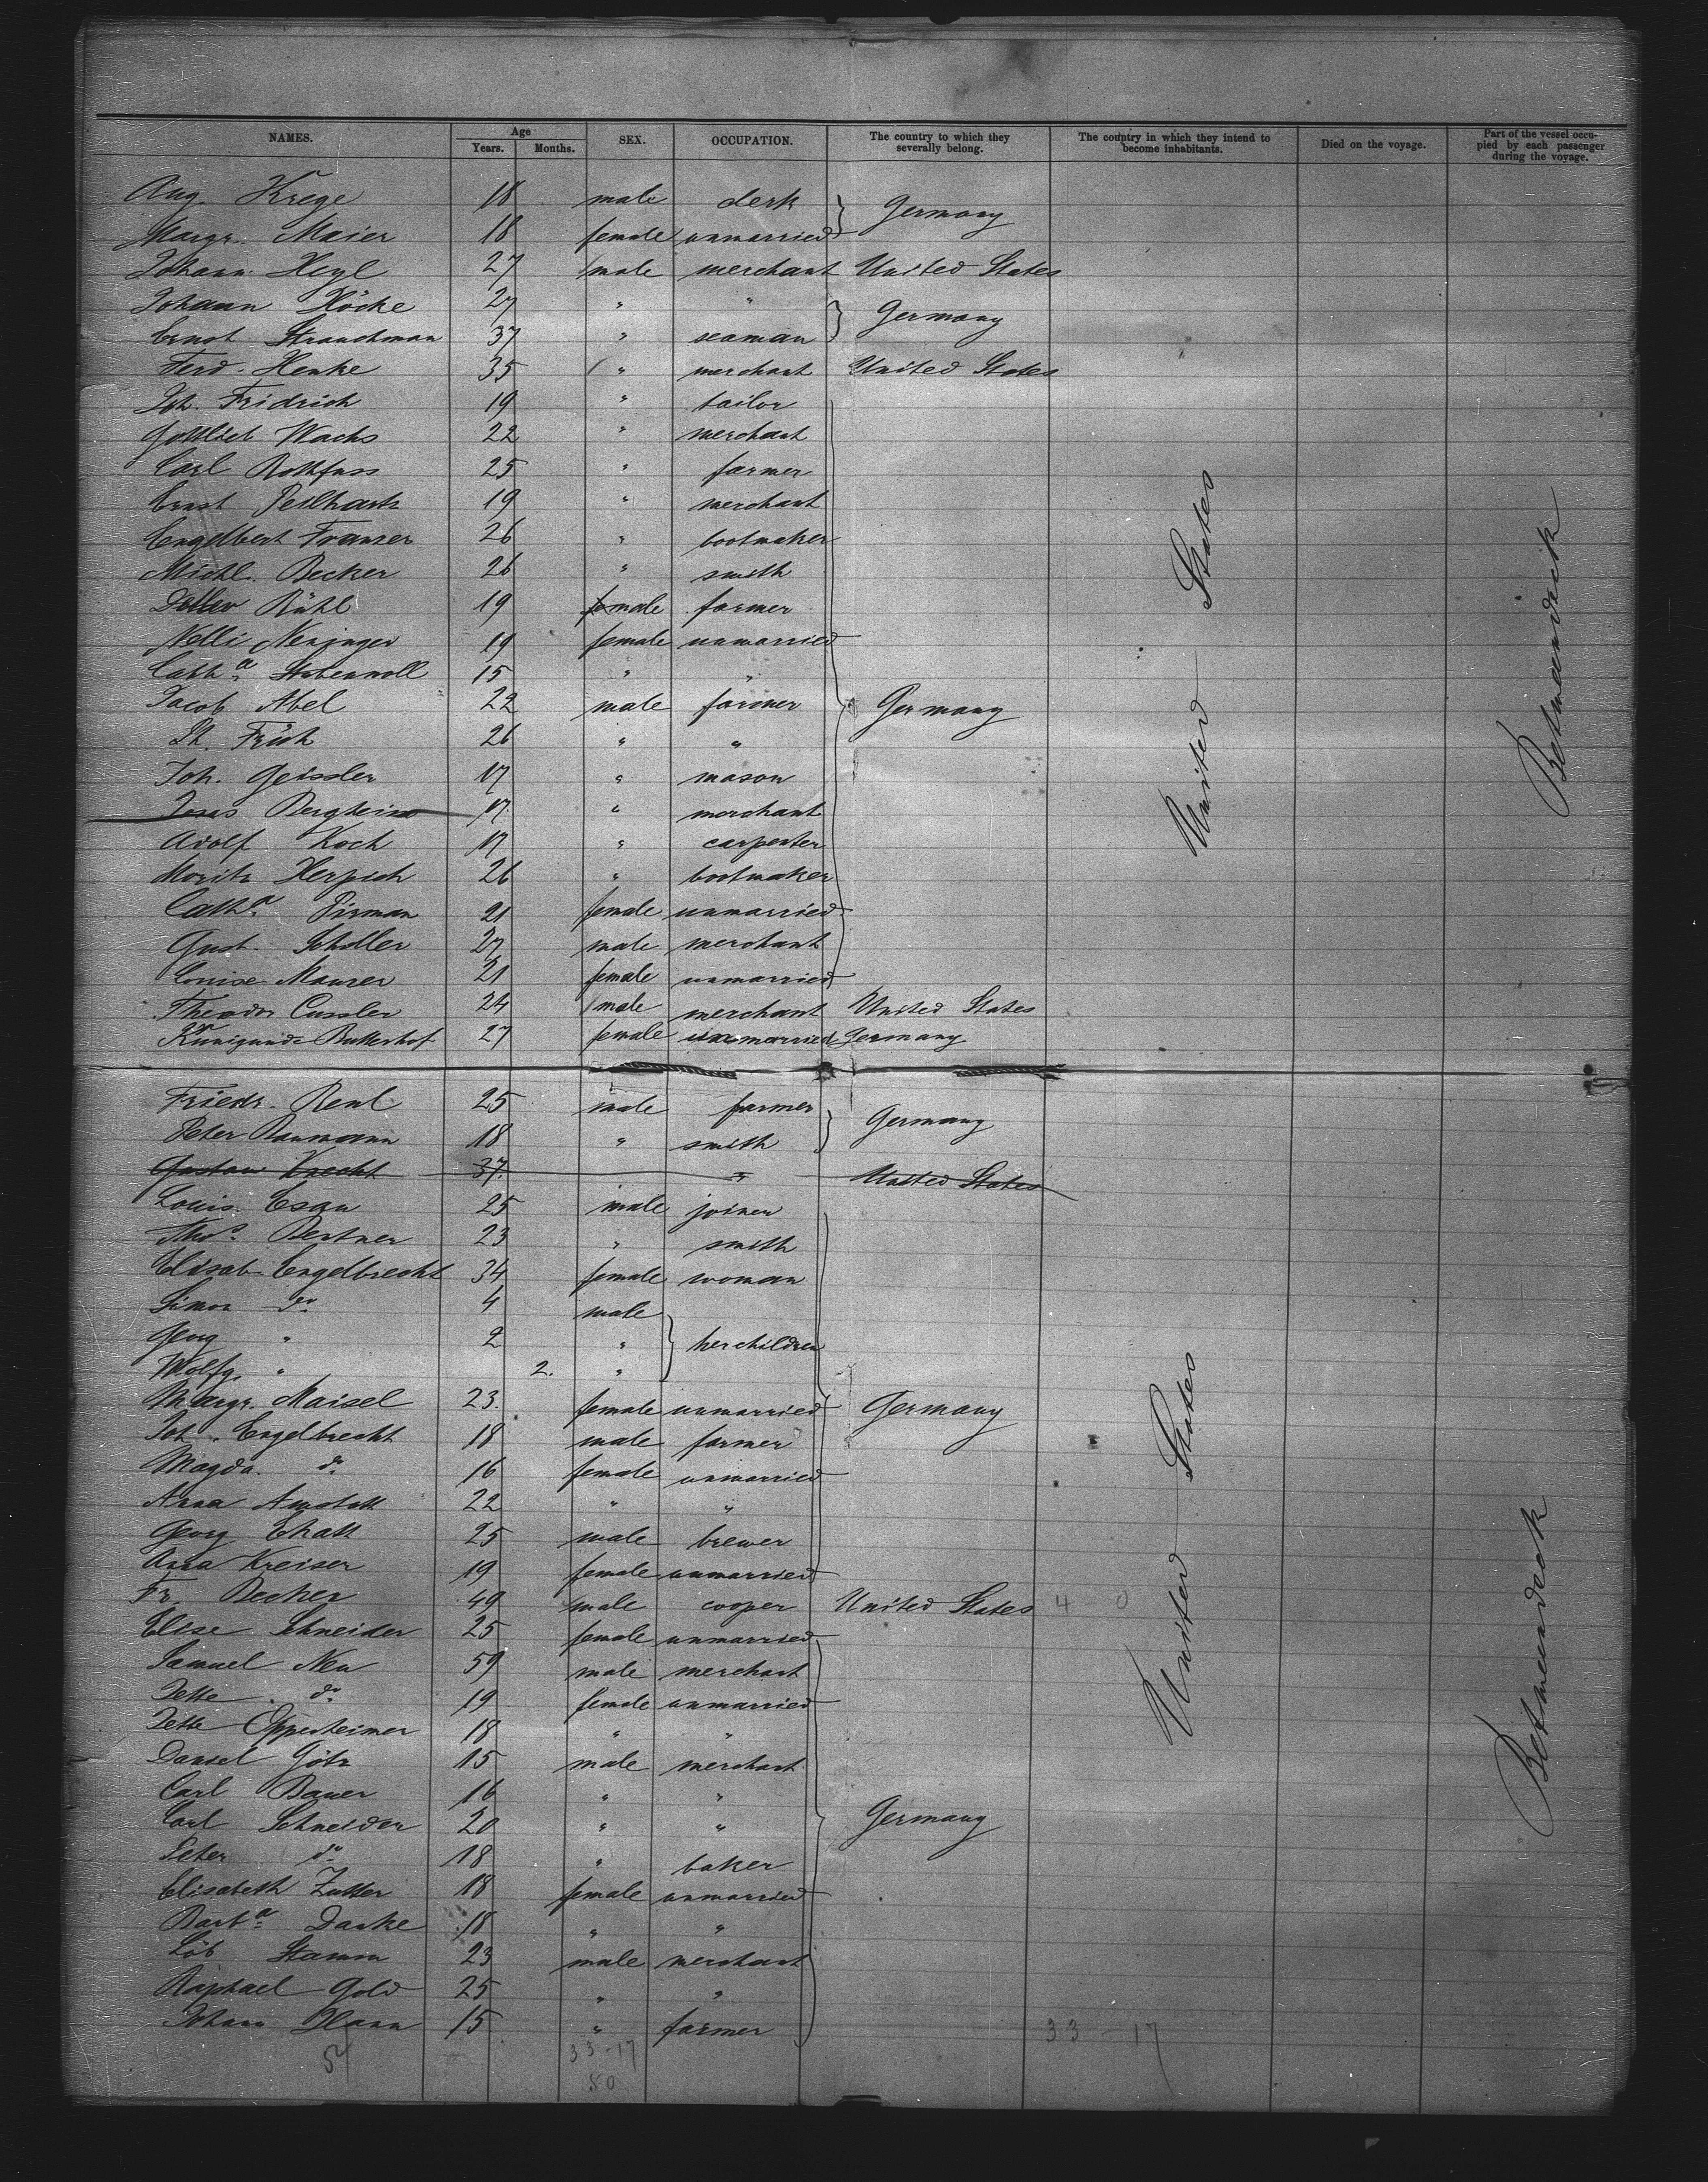 NAMES. Age Years. Months. SEX. OCCUPATION. The country to which they severally belong. The country in which they intend to become inhabitants. Died on the voyage. Part of the vessel occupied by each passenger during the voyage.
Aug. Krege 18 male clerk Germany
Margr. Maier 18 female unmarried
Johann Heyl 27 male merchant United States
Johann Höcke 27 " " Germany
Ernst Strauchman 37 " seaman
Ferd. Henke 35 " merchant United States
Joh. Fridrich 19 " tailor
Gottlieb Wachs 22 " merchant
Carl Rothfuss 25 " farmer
Ernst 19 " merchant
Engelbert Franzer 26 " bootmaker
Michl. Becker 26 " smith
Detlev Rühl 19 male farmer
Nelli 19 female unmarried
Cath.a Stubenvoll 15 " "
Jacob Abel 22 male farmer Germany
26 " "
Joh. Geissler 17 " mason
Bergheim 17. " merchant
Adolf Koch 17 " carpenter
Moritz Herpich 26 " bootmaker
Cath.a Pirman 21 female unmarried
Gust. Scholler 27 male merchant
Louise Maurer 21 female unmarried
Theodor Cussler 24 male merchant United States
Kunigunde Butterhof 27 female unmarried Germany
United States
Betweendeck
Friedr. Renl 25 male farmer Germany
Peter Baumann 18 " smith
Gustav Knecht 37. " United States
Louis Esau 25 male joiner
Tho.s Bertner 23 " smith
Elisab. Engelbrecht 34 female woman
Simon do 4 male
Georg " 2 " her children
Wolfg. " 2. "
Margr. Maisel 23. female unmarried Germany
Joh. Engelbrecht 18 male farmer
Magda. do 16 female unmarried
Anna Amstatt 22 " "
Georg Ehatt 25 male brewer
Anna Kreiser 19 female unmarried
Fr. Becker 49 male cooper United States 4 - 0
Elise Schneider 25 female unmarried
Samuel Neu 59 male merchant
Jette do 19 female unmarried
Jette Oppenheimer 18 " "
Daniel Götz 15 male merchant
Carl Bauer 16 " "
Carl Schneider 20 " " Germany
Peter do 18 " baker
Elisabeth Zutter 18 female unmarried
Barb.a Danke 18 " "
Löb Stamm 23 male merchant
Raphael Gold 25 " "
Johann Hann 15 " farmer
United States
Betweendeck
33 - 17
54 33-17
50